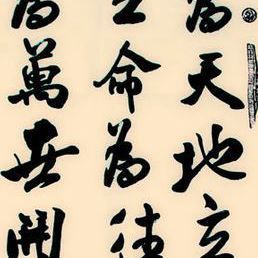 為天地立
生命為往
為萬世開